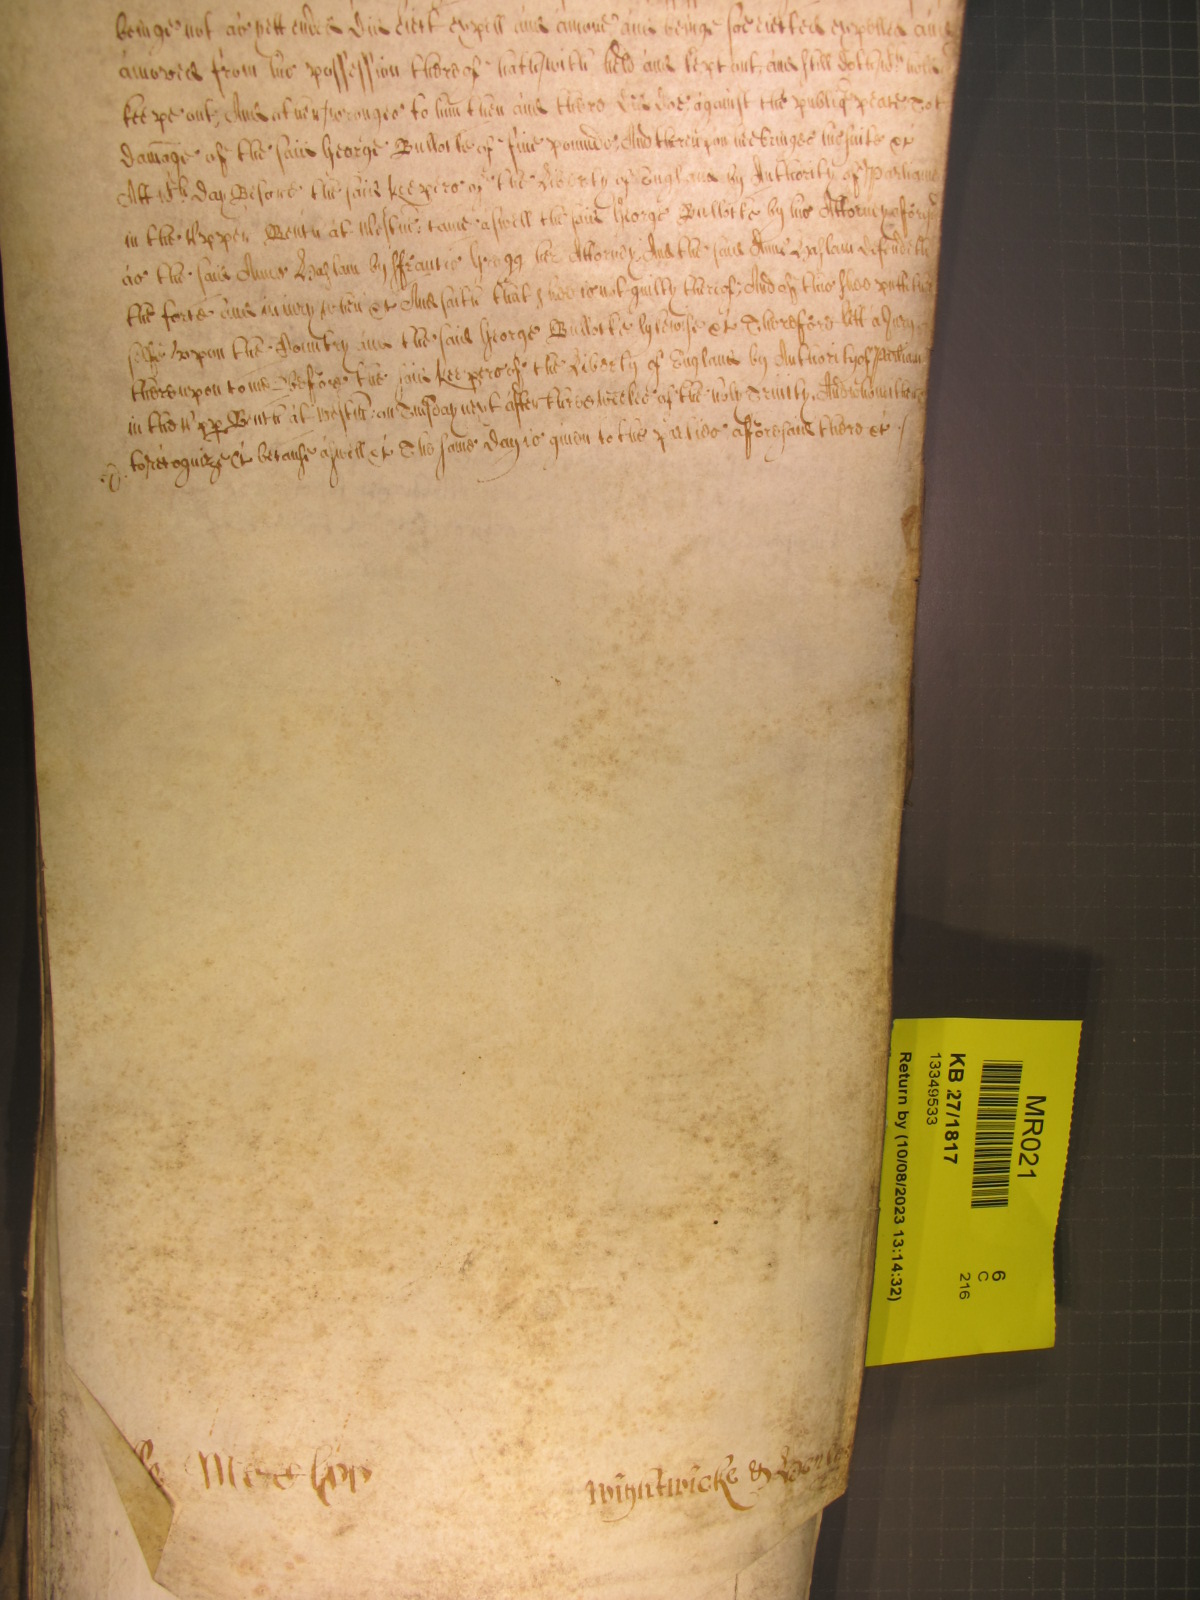 beinge not as yett ended did eiect expell and amove and beinge soe eiected expelled and
amoved from his possession thereof hath with held and kept out and still doth
keepe out, And other wronges to him then and there did doe against the publiq peace To the
damage of the said George Bullocke of five pounds, And thereupon he bringes his suite &c
Att wch day Before the said keepers of the Liberty of England by Authority of Parliam
in the Upper Bench at Westm: came aswell the said George Bullocke by his Attorney aforesd
as the said Anne Haslam by ffrancis Gregg her Attorney, And the said Anne Haslam defendeth
the force and iniury when &c And saith that shee is not guilty thereof, And of this shee putteth
selfe uppon the Country and the said George Bullocke likewise &c Therefore lett a Jury
thereuppon come Before the said keepers of the Liberty of England by Authority of Parliam
in the Upper Bench at Westm: on Tuesday next after three weekes of the holy Trinity, And who neither
to recognize &c because aswell &c The same day is given to the parties aforesaid there &c
Wightwicke &
MR021
KB 27/1817
13349533
Return by (10/08/2023 13:14:32)
6
C
216